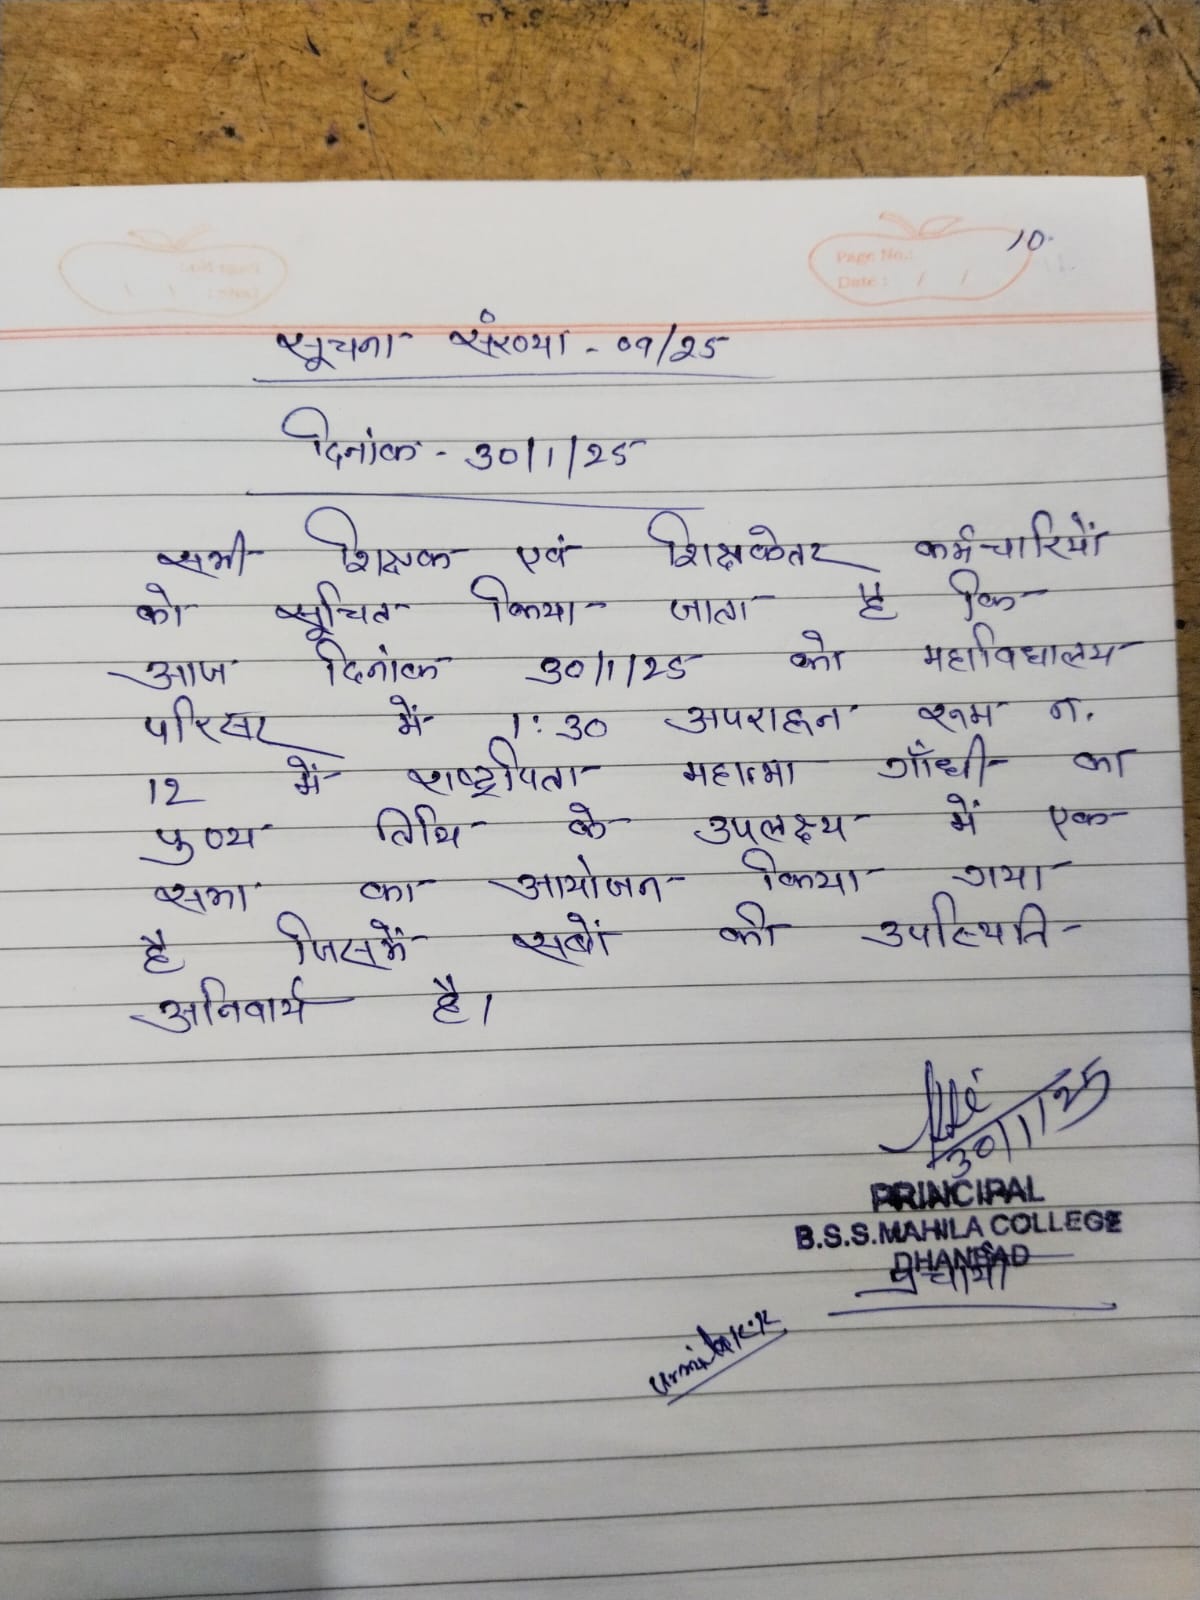 10.
Page No.:
Date : / /
सूचना संख्या - 09/25
दिनांक - 30/1/25
सभी शिक्षक एवं शिक्षकेतर कर्मचारियों
को सूचित किया जाता है कि
आज दिनांक 30/1/25 को महाविद्यालय
परिसर में 1:30 अपराह्न रूम न.
12 में राष्ट्रपिता महात्मा गाँधी का
पुण्य तिथि के उपलक्ष्य में एक
सभा का आयोजन किया गया
है जिसमें सबों की उपस्थिति
अनिवार्य है।
30/1/25
PRINCIPAL
B.S.S.MAHILA COLLEGE
DHANBAD
प्रचार्या